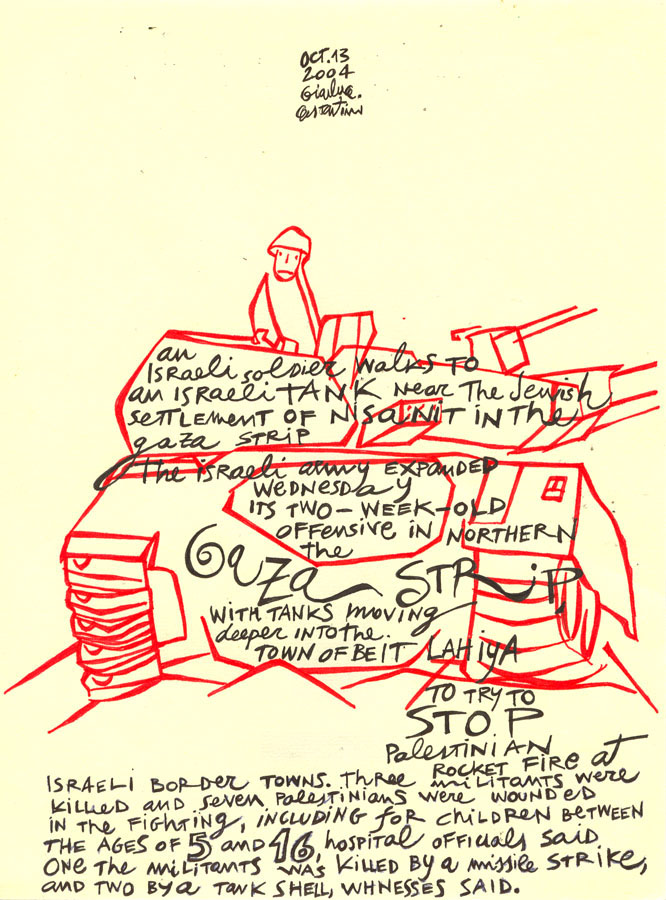 OCT.13
2004
Gianluca.
Costantini
an
ISRaeli soldier walks TO
an ISRaeli TANK NeaR The Jewish
SeTTLEMENT OF NISANIT IN The
gaza STRIP
The israeli army EXPANDED
WEDNESDAY
ITS TWO-WEEK-OLD
OFFENSIVE IN NORTHERN
the
GAZA STRIP
WITH TANKS moving
deeper INTO the.
TOWN OF BEIT LAHIYA
TO TRY TO
STOP
PaLeSTINIAN
ROCKET FIRE AT
ISRAELI BORDER TOWNS. THREE militants weRe
KILLED and seven Palestinians weRe WOUNDED
IN THE FIGHTING, INCLUDING FOR CHILDREN BETWEEN
THE AGES OF 5 AND 16, hospital OFFICIALS SAID
ONE THE militants was KILLED BY a missile STRIKE,
AND TWO BY a TANK SHELL, WHNESSES SAID.